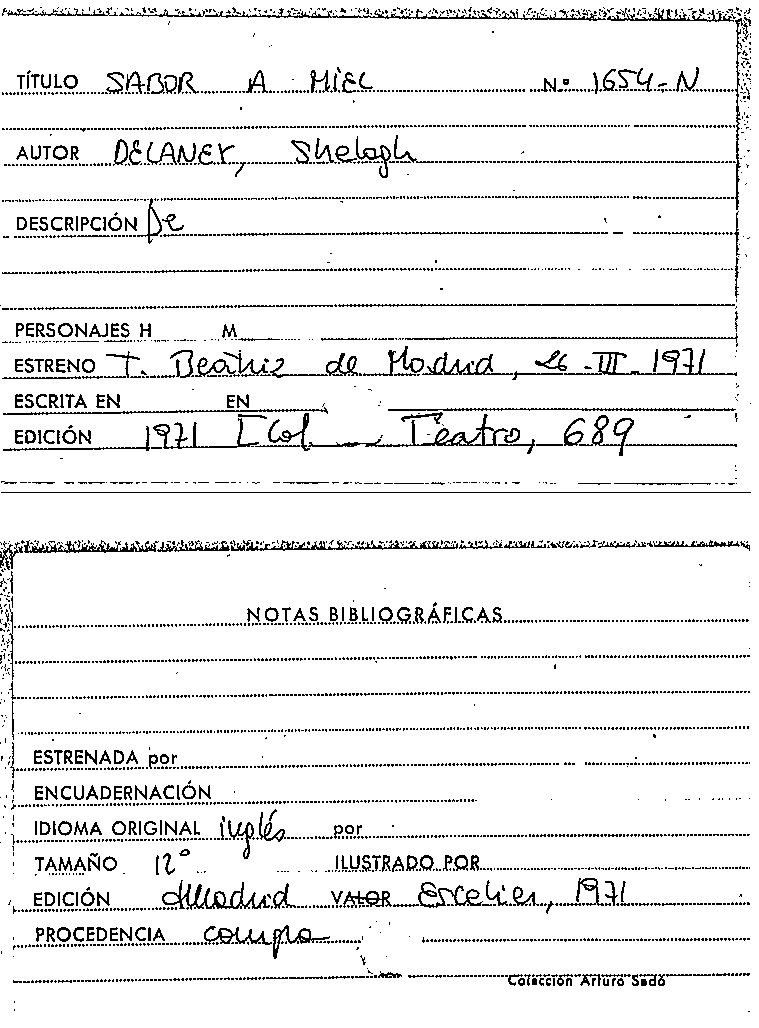 TÍTULO SABOR A MIEL Nº 1654-N
AUTOR DELANEY, Shelagh
DESCRIPCIÓN De
PERSONAJES H M
ESTRENO T. Beatriz de Madrid, 26-III-1971
ESCRITA EN EN
EDICIÓN 1971 [Col. Teatro, 689
NOTAS BIBLIOGRÁFICAS
ESTRENADA por
ENCUADERNACIÓN
IDIOMA ORIGINAL inglés por
TAMAÑO 12º ILUSTRADO POR
EDICIÓN Madrid VALOR Escelier, 1971
PROCEDENCIA compra
Colección Arturo Sedó